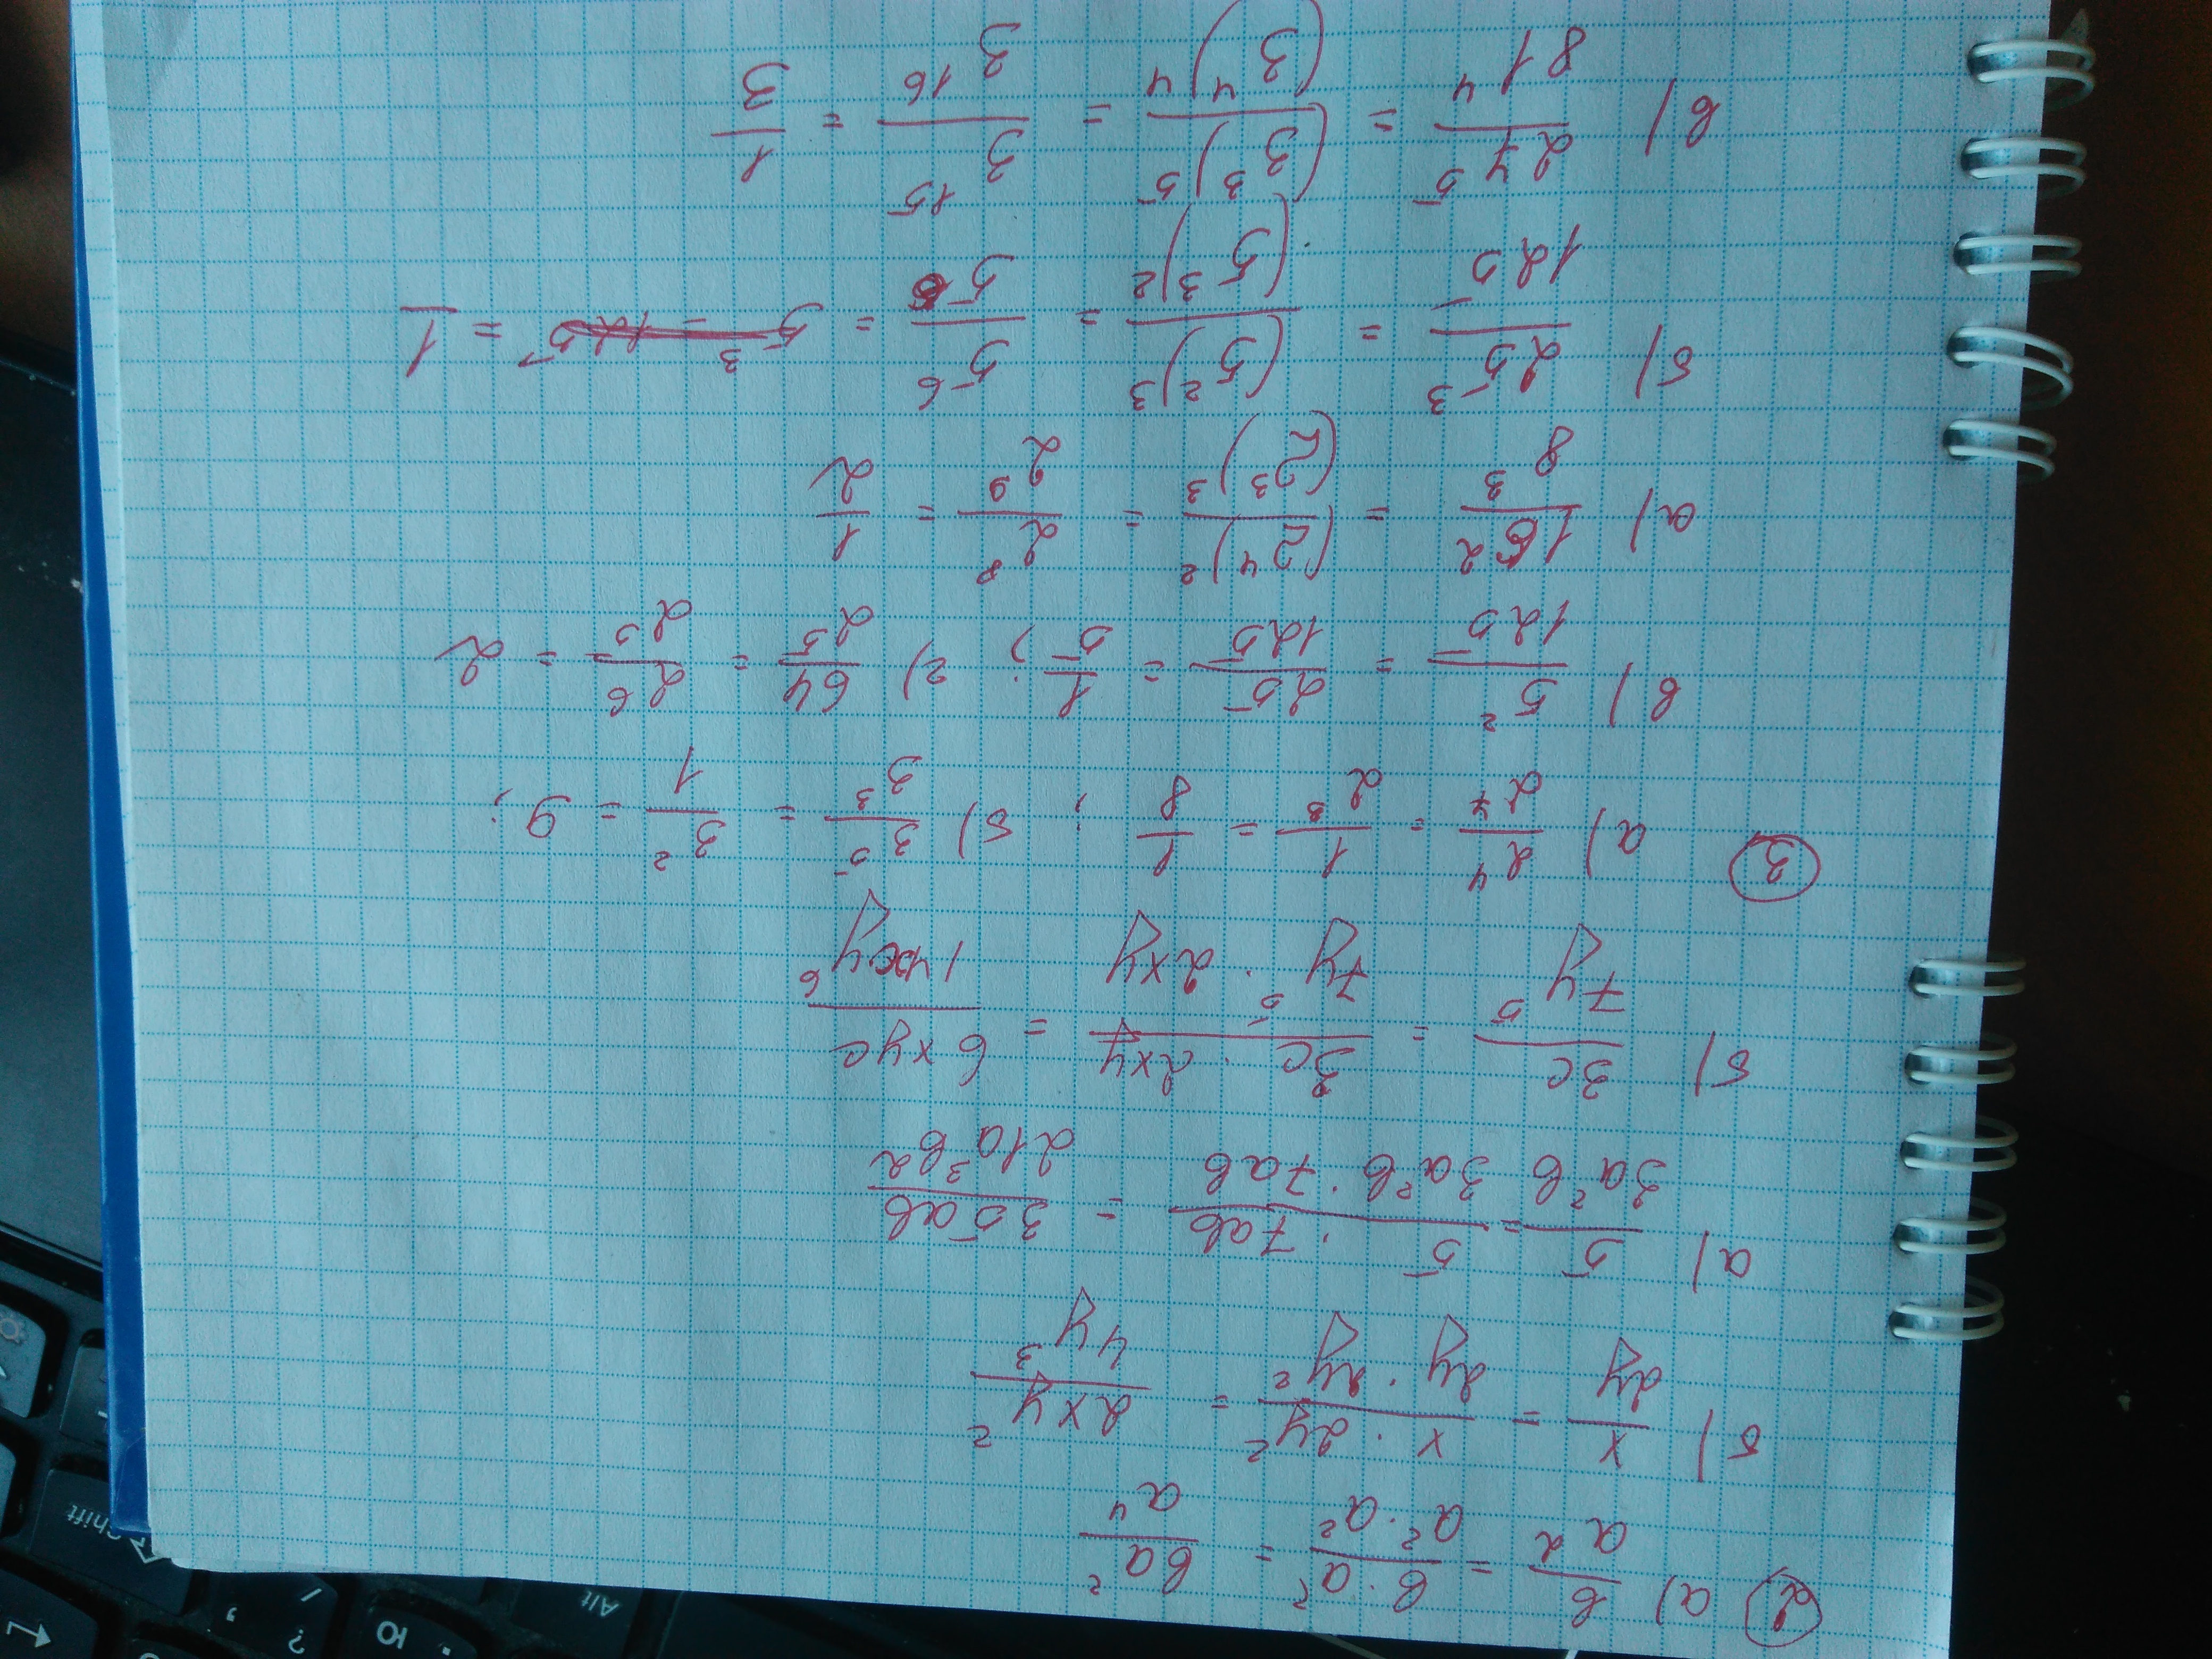 ② а) в/a² = в·a²/a²·a² = вa²/a⁴
б) x/2y = x·2y²/2y·2y² = 2xy²/4y³
а) 5/3a²в = 5·7aв/3a²в·7aв = 35aв/21a³в²
б) 3c/7y⁵ = 3c·2xy/7y⁵·2xy = 6xyc/14xy⁶
③ а) 2⁴/2⁷ = 1/2³ = 1/8; б) 3⁵/3³ = 3²/1 = 9;
в) 5²/125 = 25/125 = 1/5; г) 64/2⁵ = 2⁶/2⁵ = 2
а) 16²/8³ = (2⁴)²/(2³)³ = 2⁸/2⁹ = 1/2
б) 25³/125 = (5²)³/(5³)² = 5⁶/5⁶ = 5³ = 125 = 1
в) 27⁵/81⁴ = (3³)⁵/(3⁴)⁴ = 3¹⁵/3¹⁶ = 1/3
Shift
Alt
Ю
?
/
,
.